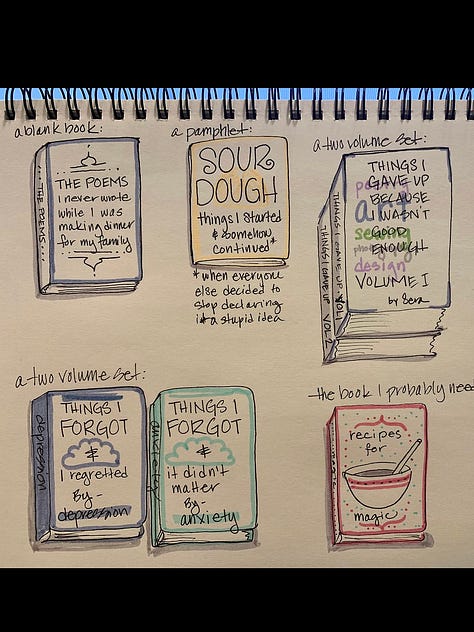 a blank book:
... THE POEMS ...
THE POEMS
I never wrote
while I was
making dinner
for my family
a pamphlet:
SOUR
DOUGH
things I started
& somehow
continued*
*when everyone
else decided to
stop declaring
it a stupid idea
a two volume set:
THINGS I GAVE UP VOL 1
THINGS I GAVE UP VOL 2
THINGS I
GAVE UP
BECAUSE
I WASN'T
GOOD
ENOUGH
art
sewing
design
VOLUME I
by Sera
a two volume set:
depression
THINGS I
FORGOT
&
I regretted
By -
depression
anxiety
THINGS I
FORGOT
&
it didn't
matter
By -
anxiety
the book I probably nee
recipes
for
magic